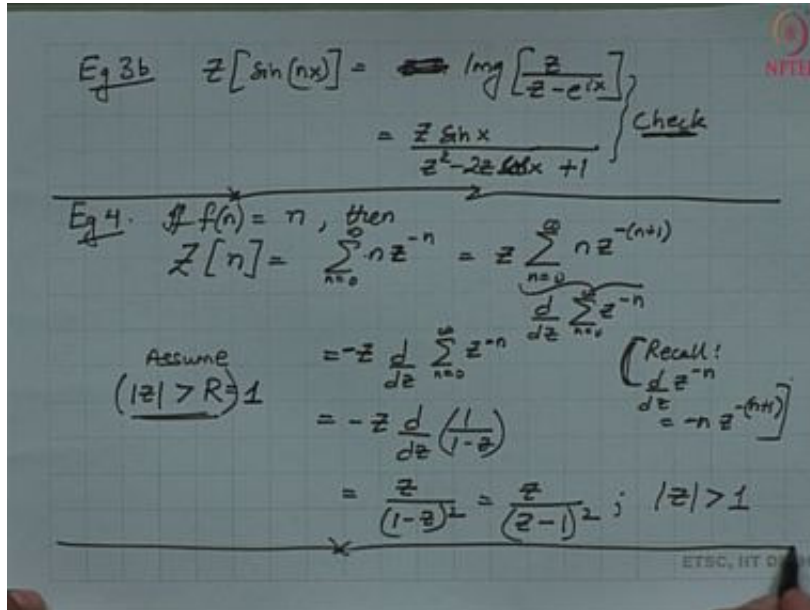 NPTEL
Eg 3b Z[sin(nx)] = Img [z/(z - e^{ix})]
= z sin x/(z² - 2z cos x + 1) } Check
Eg 4. If f(n) = n, then
Z[n] = ∑_{n=0}^{∞} n z^{-n} = z ∑_{n=0}^{∞} n z^{-(n+1)}
d/dz ∑_{n=0}^{∞} z^{-n}
Assume
(|z| > R) = 1
= -z d/dz ∑_{n=0}^{∞} z^{-n}
[Recall:
d/dz z^{-n}
= -n z^{-(n+1)}]
= -z d/dz (1/(1-z))
= z/(1-z)² = z/(z-1)² ; |z| > 1
ETSC, IIT